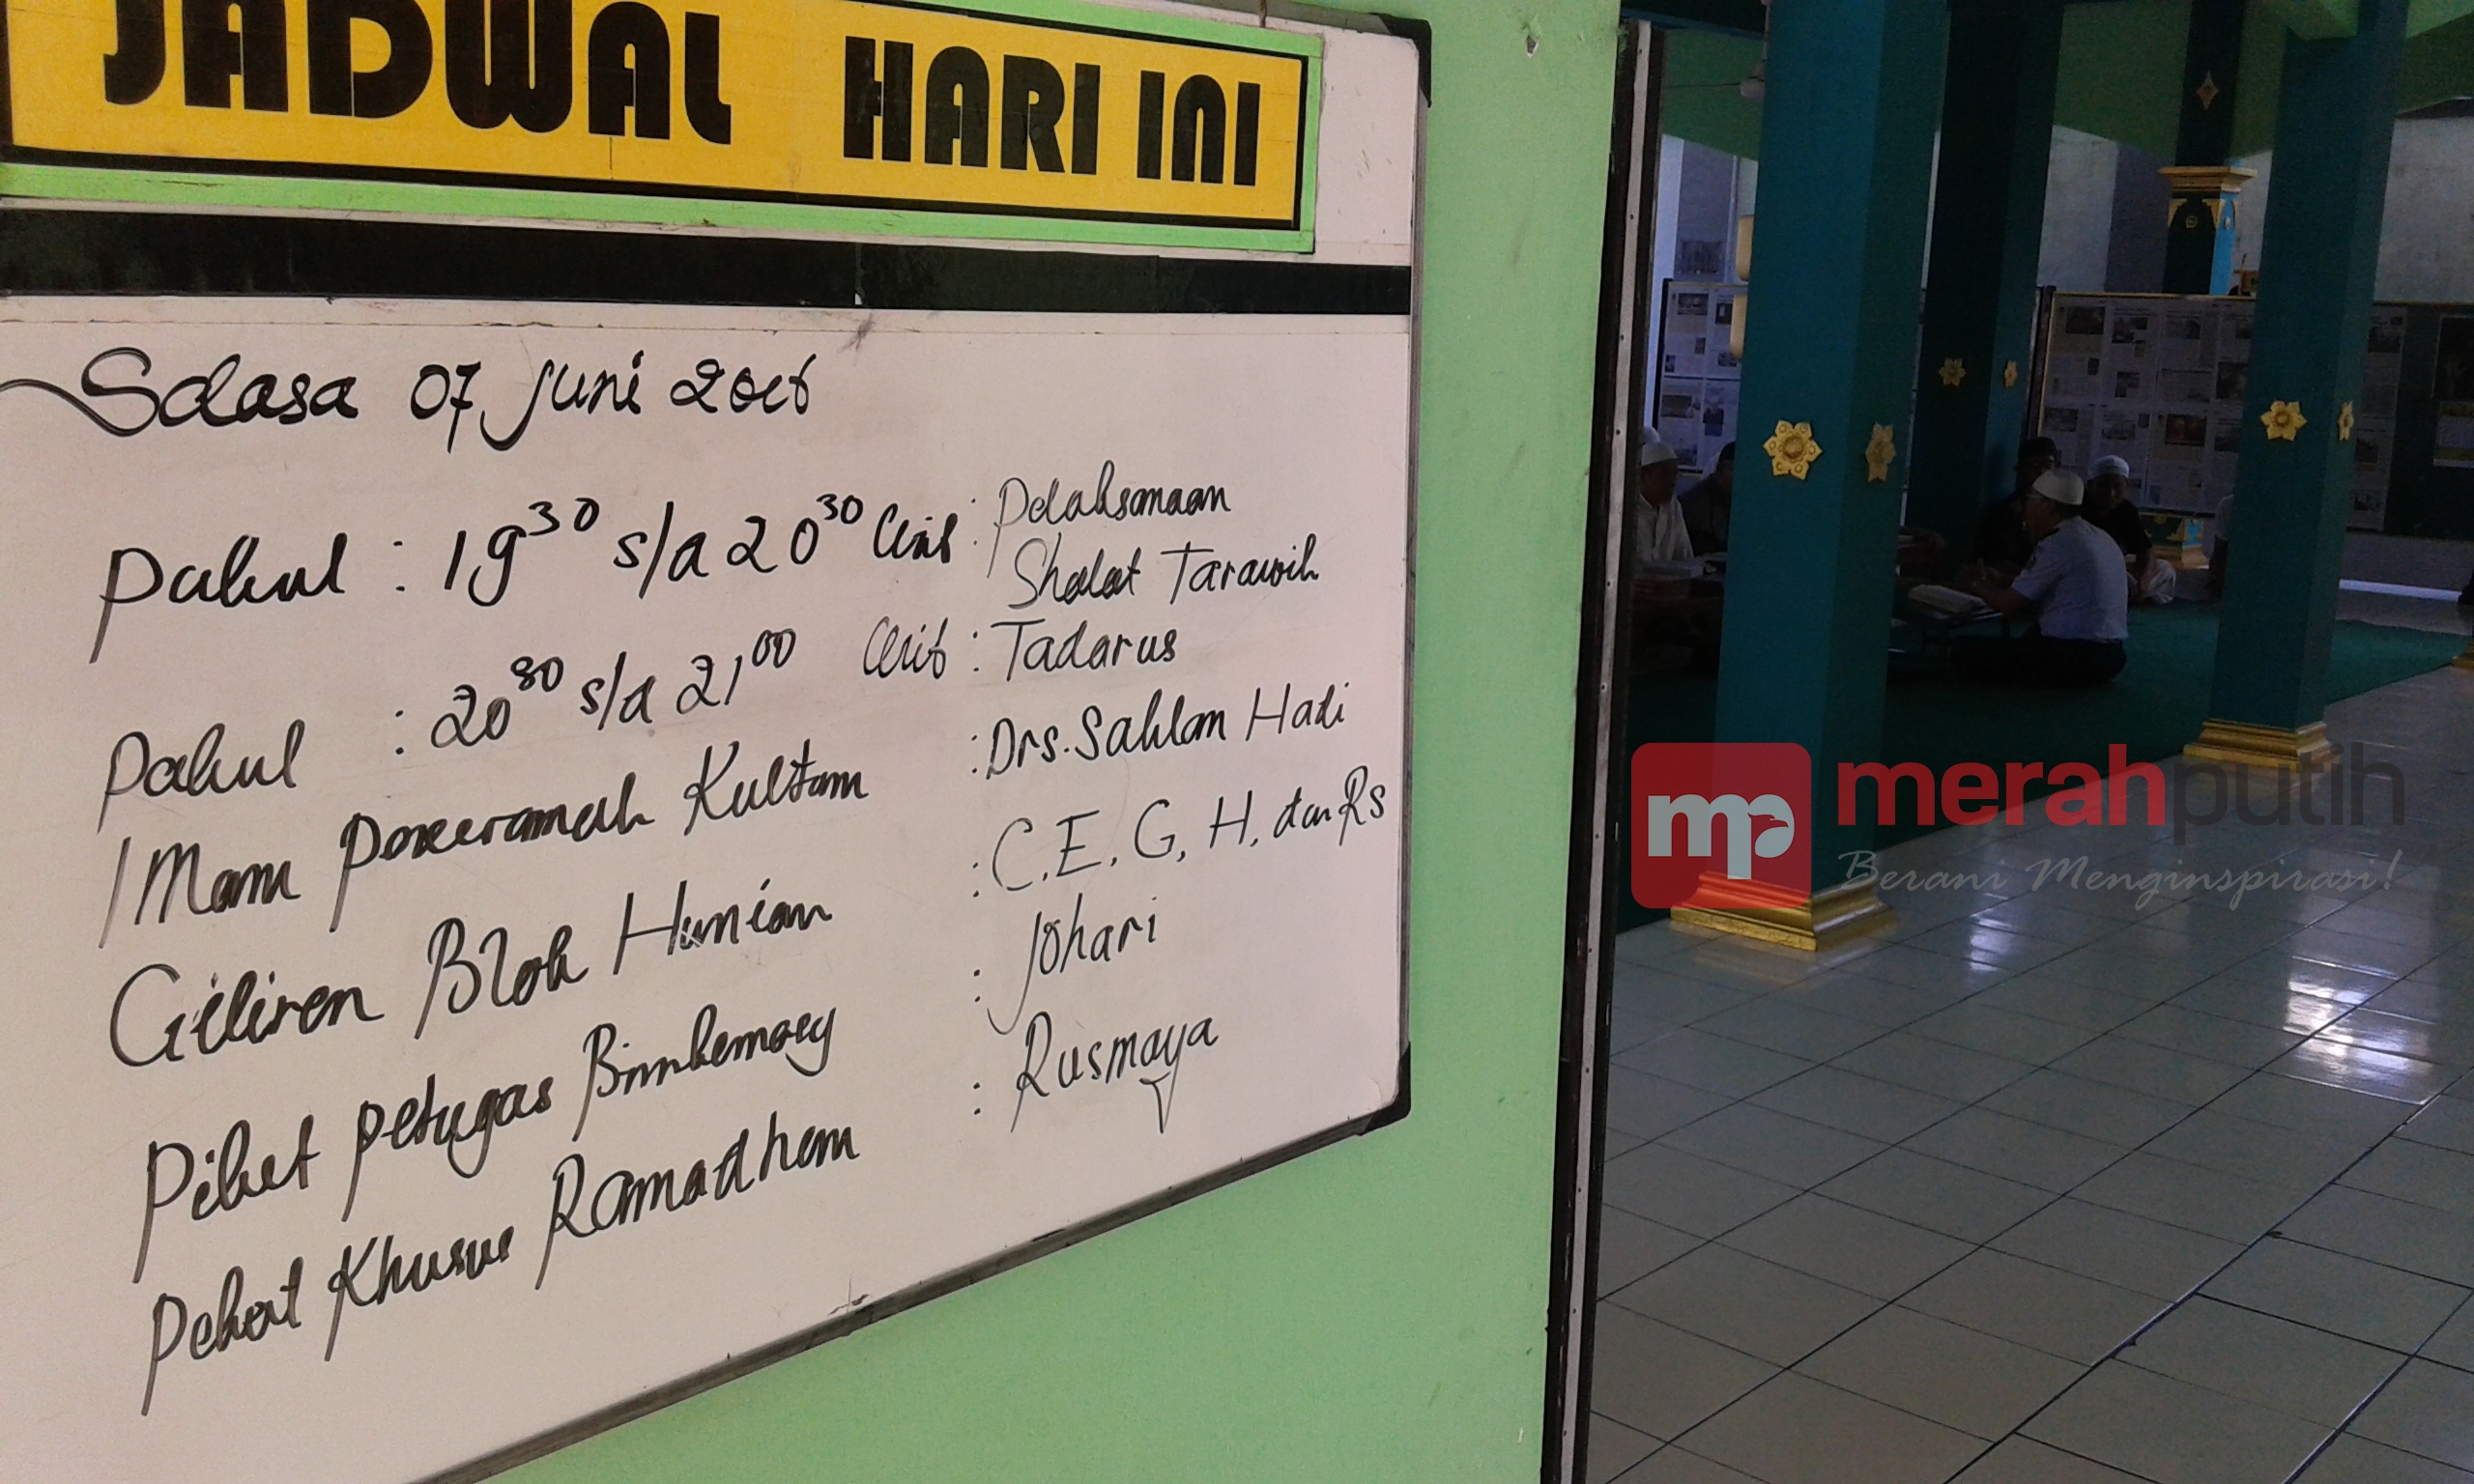 JADWAL HARI INI
Selasa 07 Juni 2016
Pakul : 19³⁰ s/d 20³⁰ : Pelaksanaan
Shalat Tarawih
Pakul : 20³⁰ s/d 21⁰⁰ : Tadarus
Imam Penceramah Kultum : Drs. Sahlan Hadi
Giliran Blok Hunian : C, E, G, H, dan RS
Piket petugas : Johari
Piket Khusus Ramadhan : Rusmaya
mp merahputih
Berani Menginspirasi!